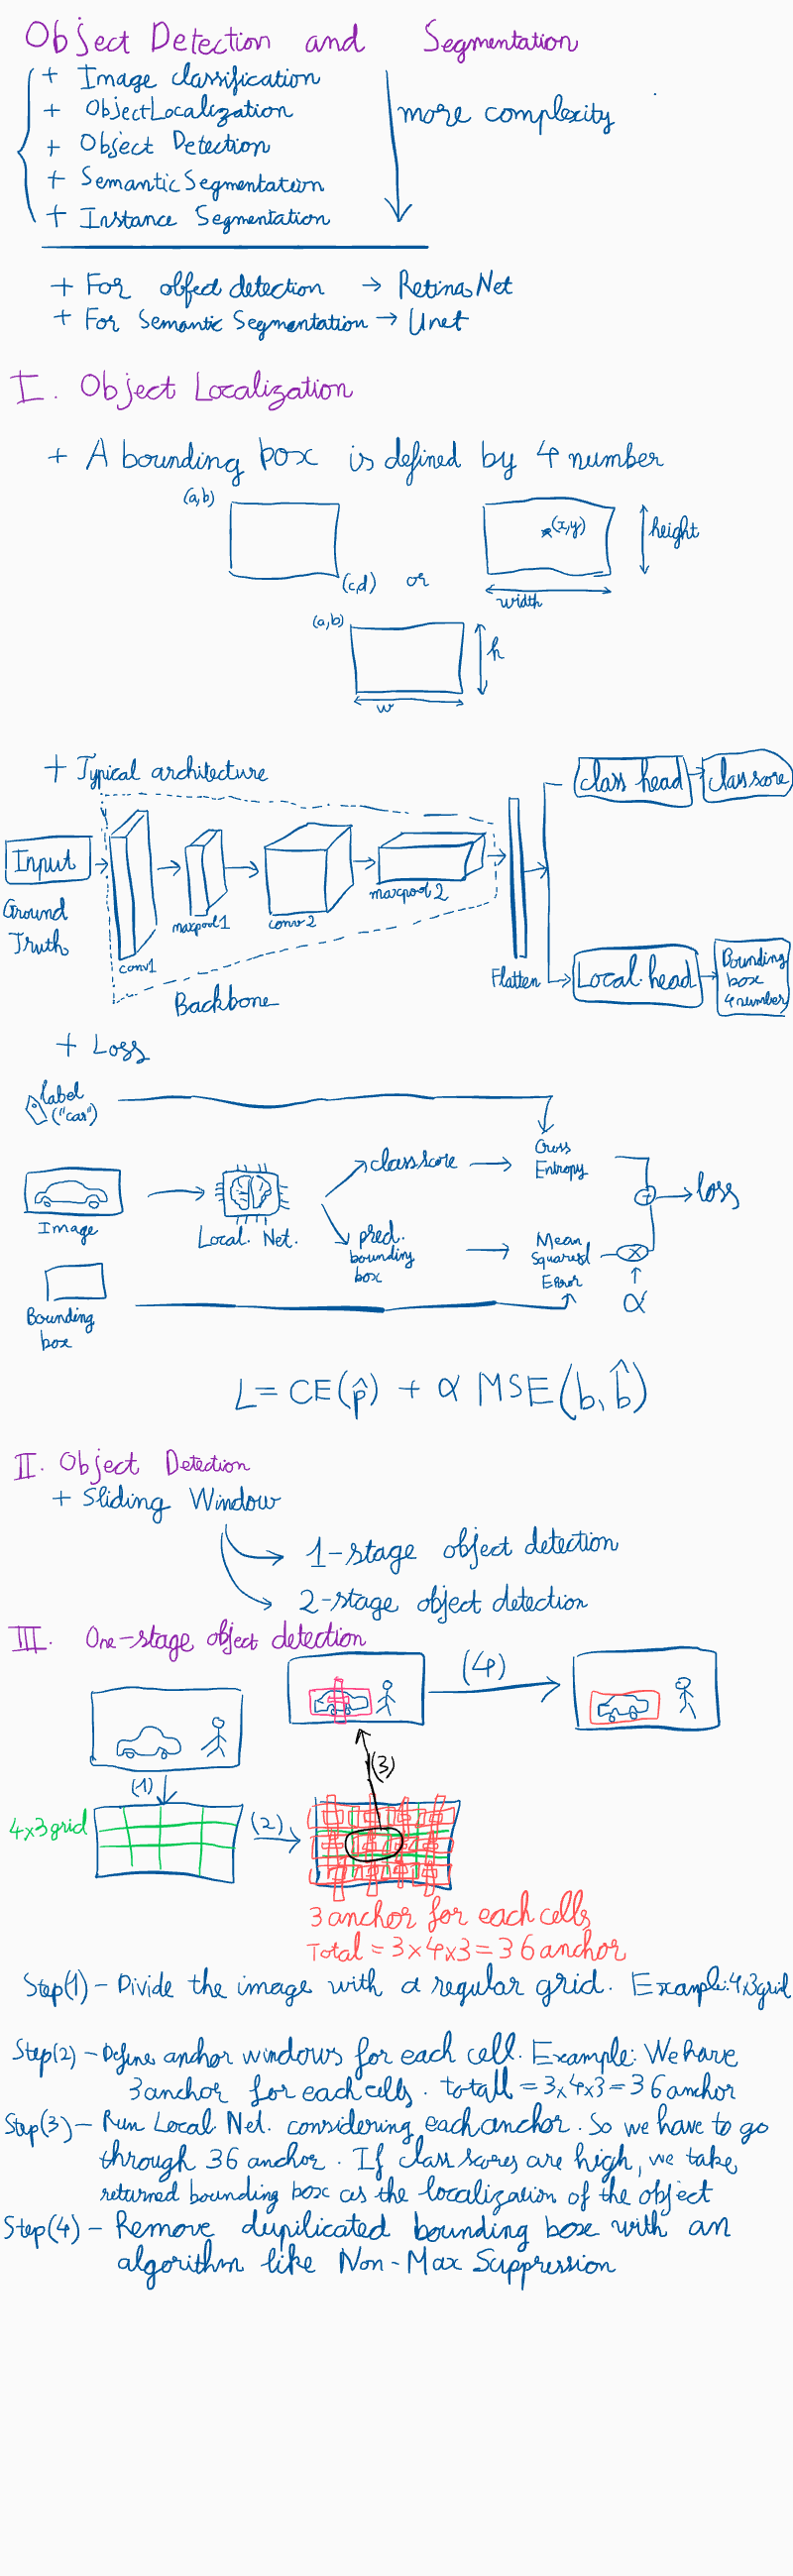 Object Detection and Segmentation
+ Image classification
+ ObjectLocalization
+ Object Detection
+ Semantic Segmentation
+ Instance Segmentation
more complexity
+ For object detection → RetinaNet
+ For Semantic Segmentation → Unet
I. Object Localization
+ A bounding box is defined by 4 number
(a,b)
(c,d)
or
(x,y)
height
width
(a,b)
h
w
+ Typical architecture
Input
Ground
Truth
conv1
maxpool1
conv2
maxpool2
Backbone
Flatten
class head
class score
Local. head
Bounding
box
4 number
+ Loss
label
("car")
Image
Bounding
box
Local. Net.
class score
pred.
bounding
box
Cross
Entropy
Mean
Squared
Error
+
×
α
loss
L = CE(p̂) + α MSE(b, b̂)
II. Object Detection
+ Sliding Window
1-stage object detection
2-stage object detection
III. One-stage object detection
(1)
4x3 grid
(2)
(3)
(4)
3 anchor for each cells
Total = 3x4x3 = 36 anchor
Step(1) - Divide the image with a regular grid. Example: 4x3 grid
Step(2) - Define anchor windows for each cell. Example: We have
3 anchor for each cells. totall = 3x4x3 = 36 anchor
Step(3) - Run Local. Net. considering each anchor. So we have to go
through 36 anchor. If class scores are high, we take
returned bounding box as the localization of the object
Step(4) - Remove dupilicated bounding box with an
algorithm like Non-Max Suppression